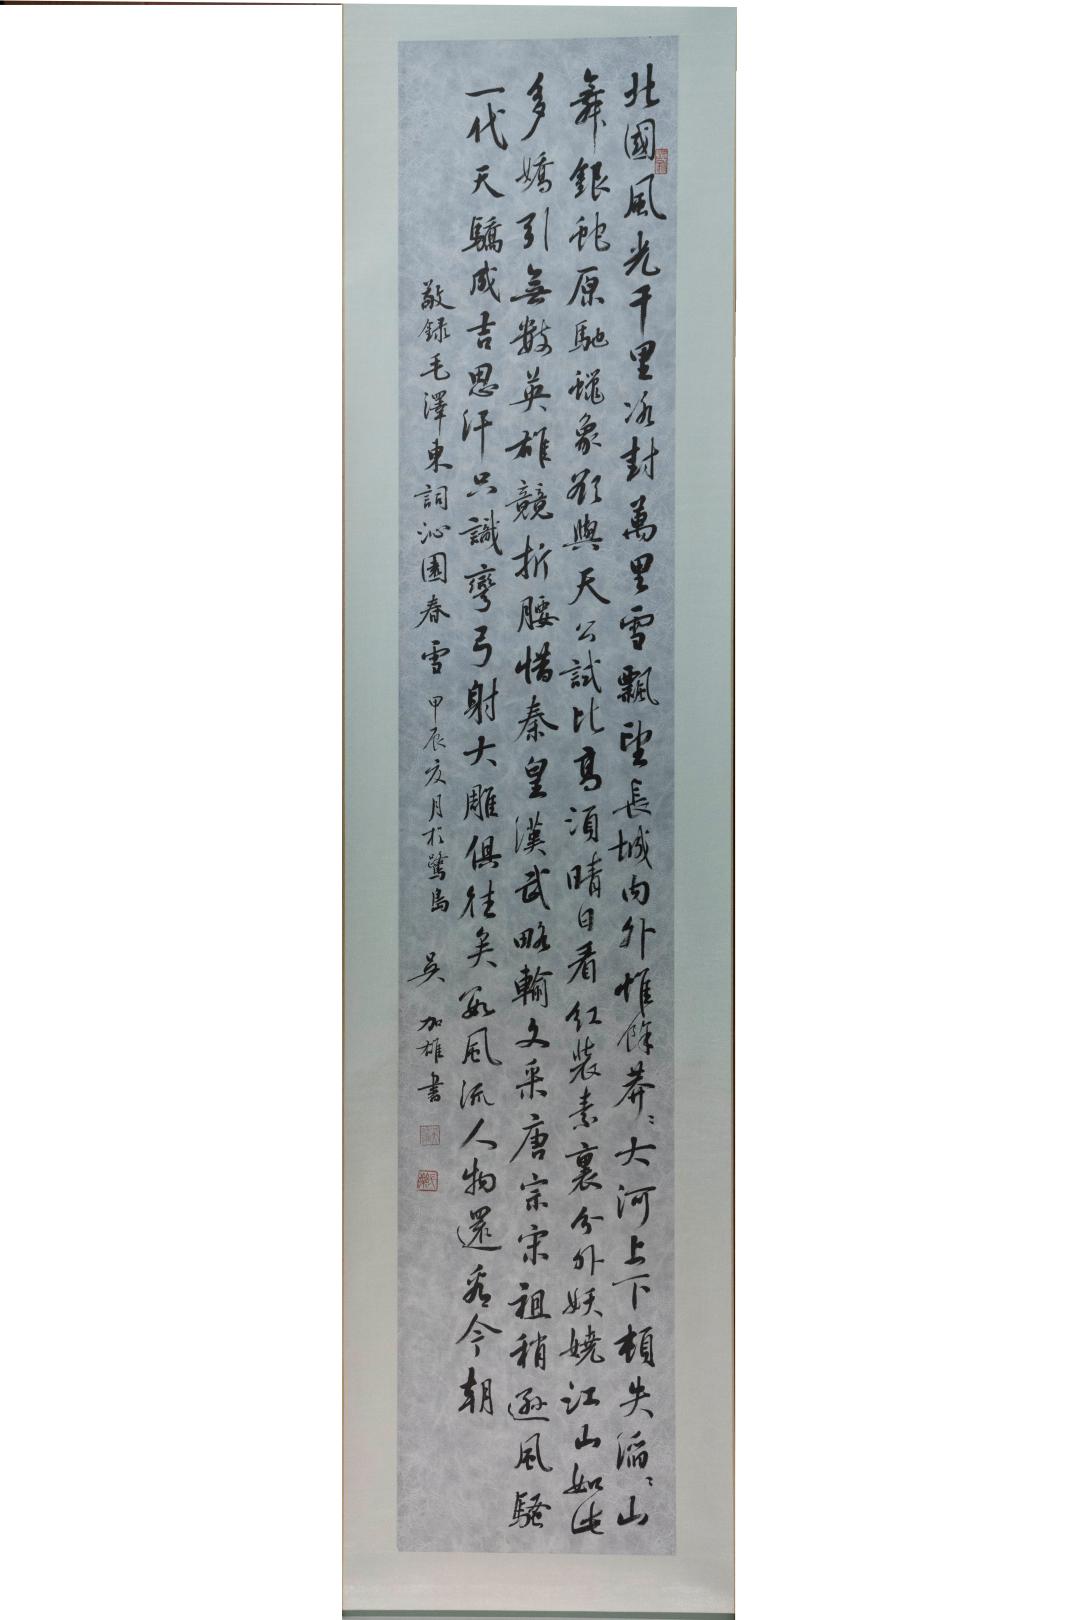 北國風光千里冰封萬里雪飄望長城內外惟餘莽〻大河上下頓失滔〻山
舞銀蛇原馳蠟象欲與天公試比高須晴日看紅裝素裹分外妖嬈江山如此
多嬌引無數英雄競折腰惜秦皇漢武略輸文采唐宗宋祖稍遜風騷
一代天驕成吉思汗只識彎弓射大雕俱往矣數風流人物還看今朝
敬録毛澤東詞沁園春雪 甲辰亥月於鷺島 吳加雄書